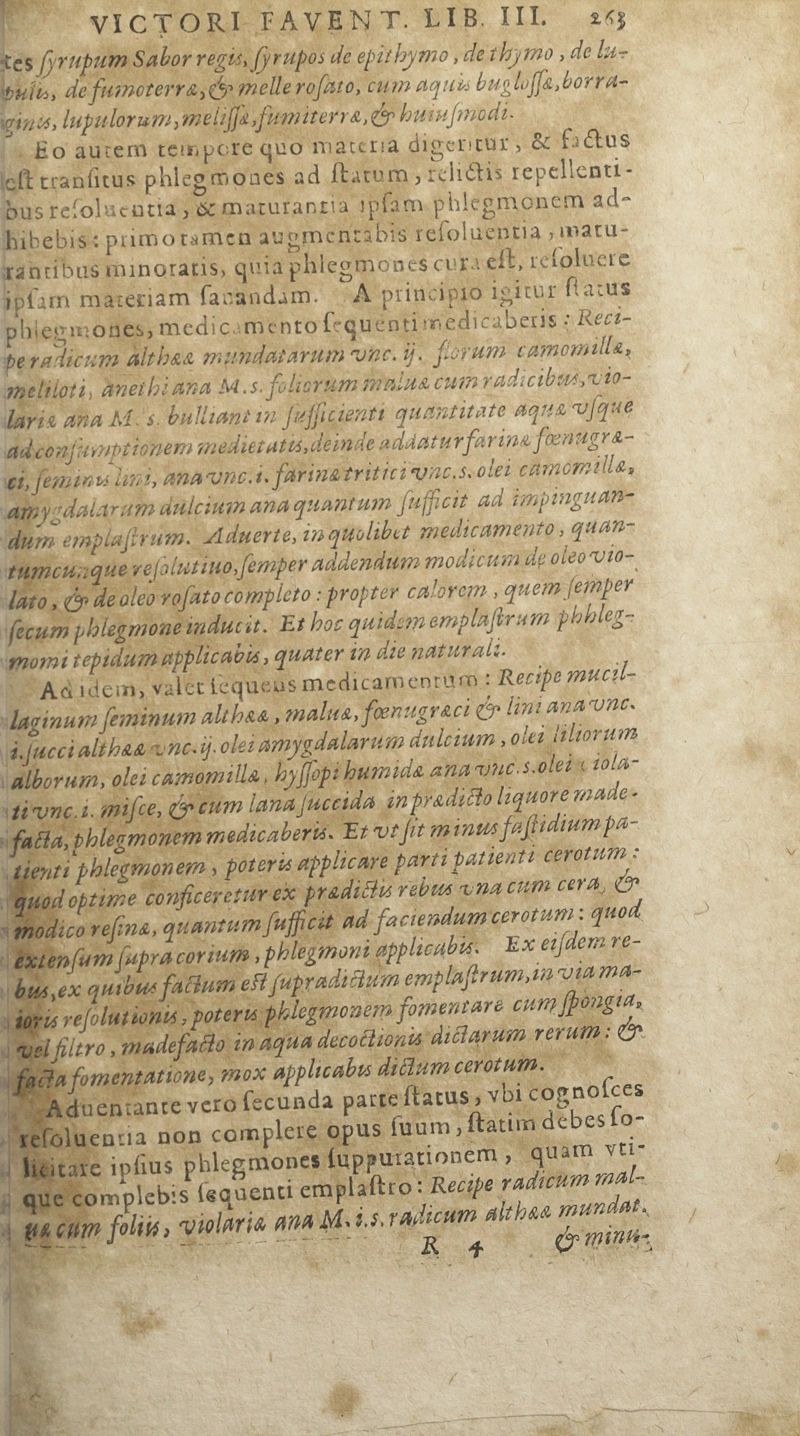 VICTORI FAVENT. LIB. III. 263
tes syrupum Sabor regis, syrupos de epithymo, de thymo, de lu-
pulis, de fumoterræ, & melle rosato, cum aquis buglossæ, borra-
ginis, lupulorum, melissæ, fumiterræ, & huiusmodi.
Eo autem tempore quo materia digeritur, & factus
est transitus phlegmones ad statum, relictis repellenti-
bus resoluentia, & maturantia ipsam phlegmonem ad-
hibebis: primo tamen augmentabis resoluentia, matu-
rantibus minoratis, quia phlegmones cura est, resoluere
ipsam materiam sanandam. A principio igitur status
phlegmones, medicamento sequenti medicaberis: Reci-
pe radicum altheæ mundatarum vnc. ij. florum camomillæ,
meliloti, anethi ana M. s. foliorum maluæ cum radicibus, vio-
lariæ ana M. s. bulliant in sufficienti quantitate aquæ vsque
ad consumptionem medietatis, deinde addatur farinæ fœnugræ-
ci, seminis lini, ana vnc. i. farinæ tritici vnc. s. olei camomillæ,
amygdalarum dulcium ana quantum sufficit ad impinguan-
dum emplastrum. Aduerte, in quolibet medicamento, quan-
tumcunque resolutiuo, semper addendum modicum de oleo vio-
lato, & de oleo rosato completo: propter calorem, quem semper
secum phlegmone inducit. Et hoc quidem emplastrum phhleg-
momi tepidum applicabis, quater in die naturali.
Ad idem, valet sequens medicamentum: Recipe mucil-
laginum seminum altheæ, maluæ, fœnugræci & lini ana vnc.
i. succi altheæ vnc. ij. olei amygdalarum dulcium, olei liliorum
alborum, olei camomillæ, hyssopi humidæ ana vnc. s. olei viola-
ti vnc. i. misce, & cum lana succida in prædicto liquore made-
facta, phlegmonem medicaberis. Et vt sit minus fastidium pa-
tienti phlegmonem, poteris applicare parti patienti cerotum:
quod optime conficeretur ex prædictis rebus vna cum cera, &
modico resinæ, quantum sufficit ad faciendum cerotum: quod
extensum supra corium, phlegmoni applicabis. Ex eisdem re-
bus, ex quibus factum est supradictum emplastrum, in via ma-
ioris resolutionis, poteris phlegmonem fomentare cum spongia,
vel filtro, madefacto in aqua decoctionis dictarum rerum: &
facta fomentatione, mox applicabis dictum cerotum.
Aduentante vero secunda parte status, vbi cognosces
resoluentia non complere opus suum, statim debes so-
licitare ipsius phlegmones suppurationem, quam vti-
que complebis sequenti emplastro: Recipe radicum mal-
uæ cum foliis, violariæ ana M. i. s. radicum altheæ mundat.
R 4 & minu-